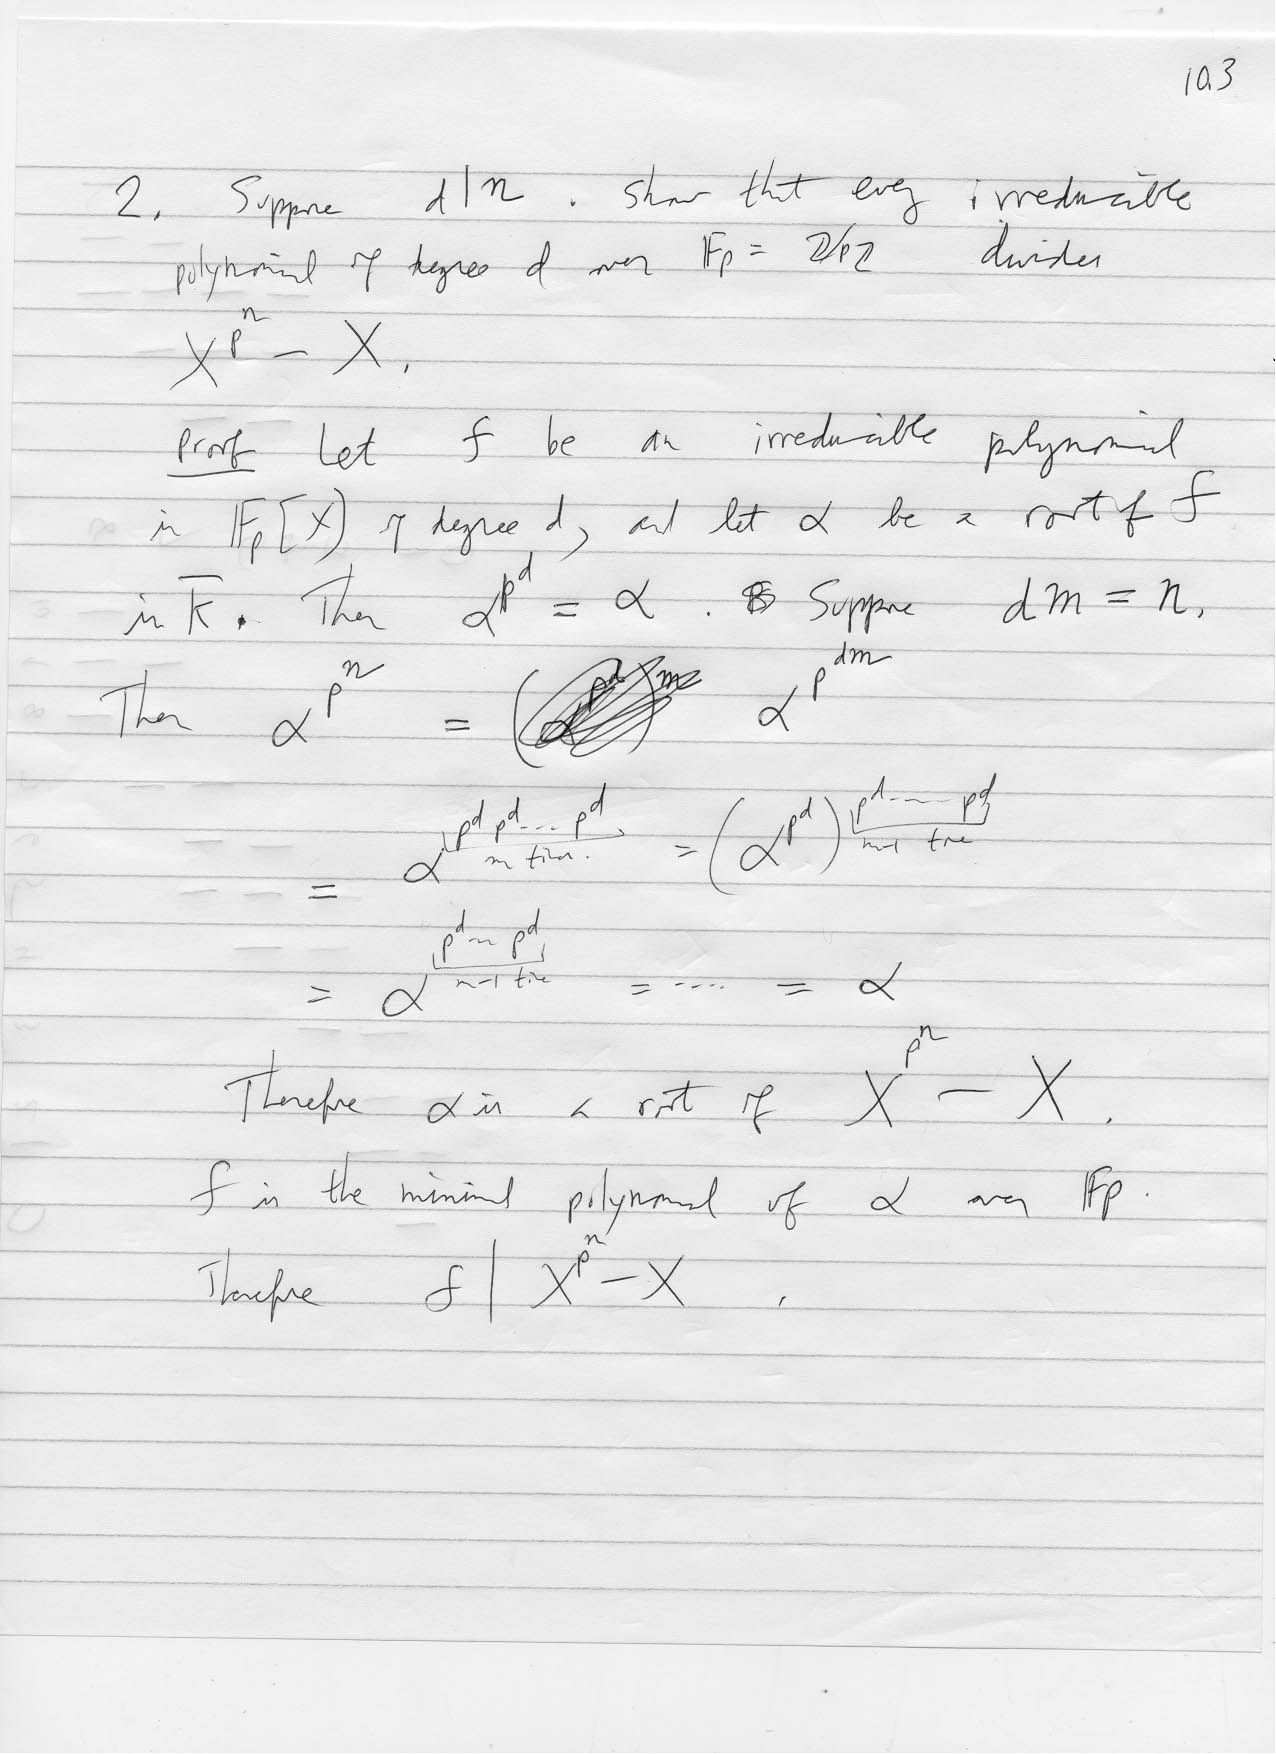 10.3
2. Suppose d|n. Show that every irreducible
polynomial of degree d over 𝔽p = ℤ/pℤ divides
X^{p^n} - X.
Proof Let f be an irreducible polynomial
in 𝔽p[X] of degree d, and let α be a root of f
in K̅. Then α^{p^d} = α. Suppose dm = n.
Then α^{p^n} = α^{p^{dm}}
= α^{p^d p^d ... p^d (m times.)} = (α^{p^d})^{p^d .... p^d (m-1 time)}
= α^{p^d ... p^d (m-1 time)} = .... = α
Therefore α is a root of X^{p^n} - X.
f is the minimal polynomial of α over 𝔽p.
Therefore f | X^{p^n} - X.